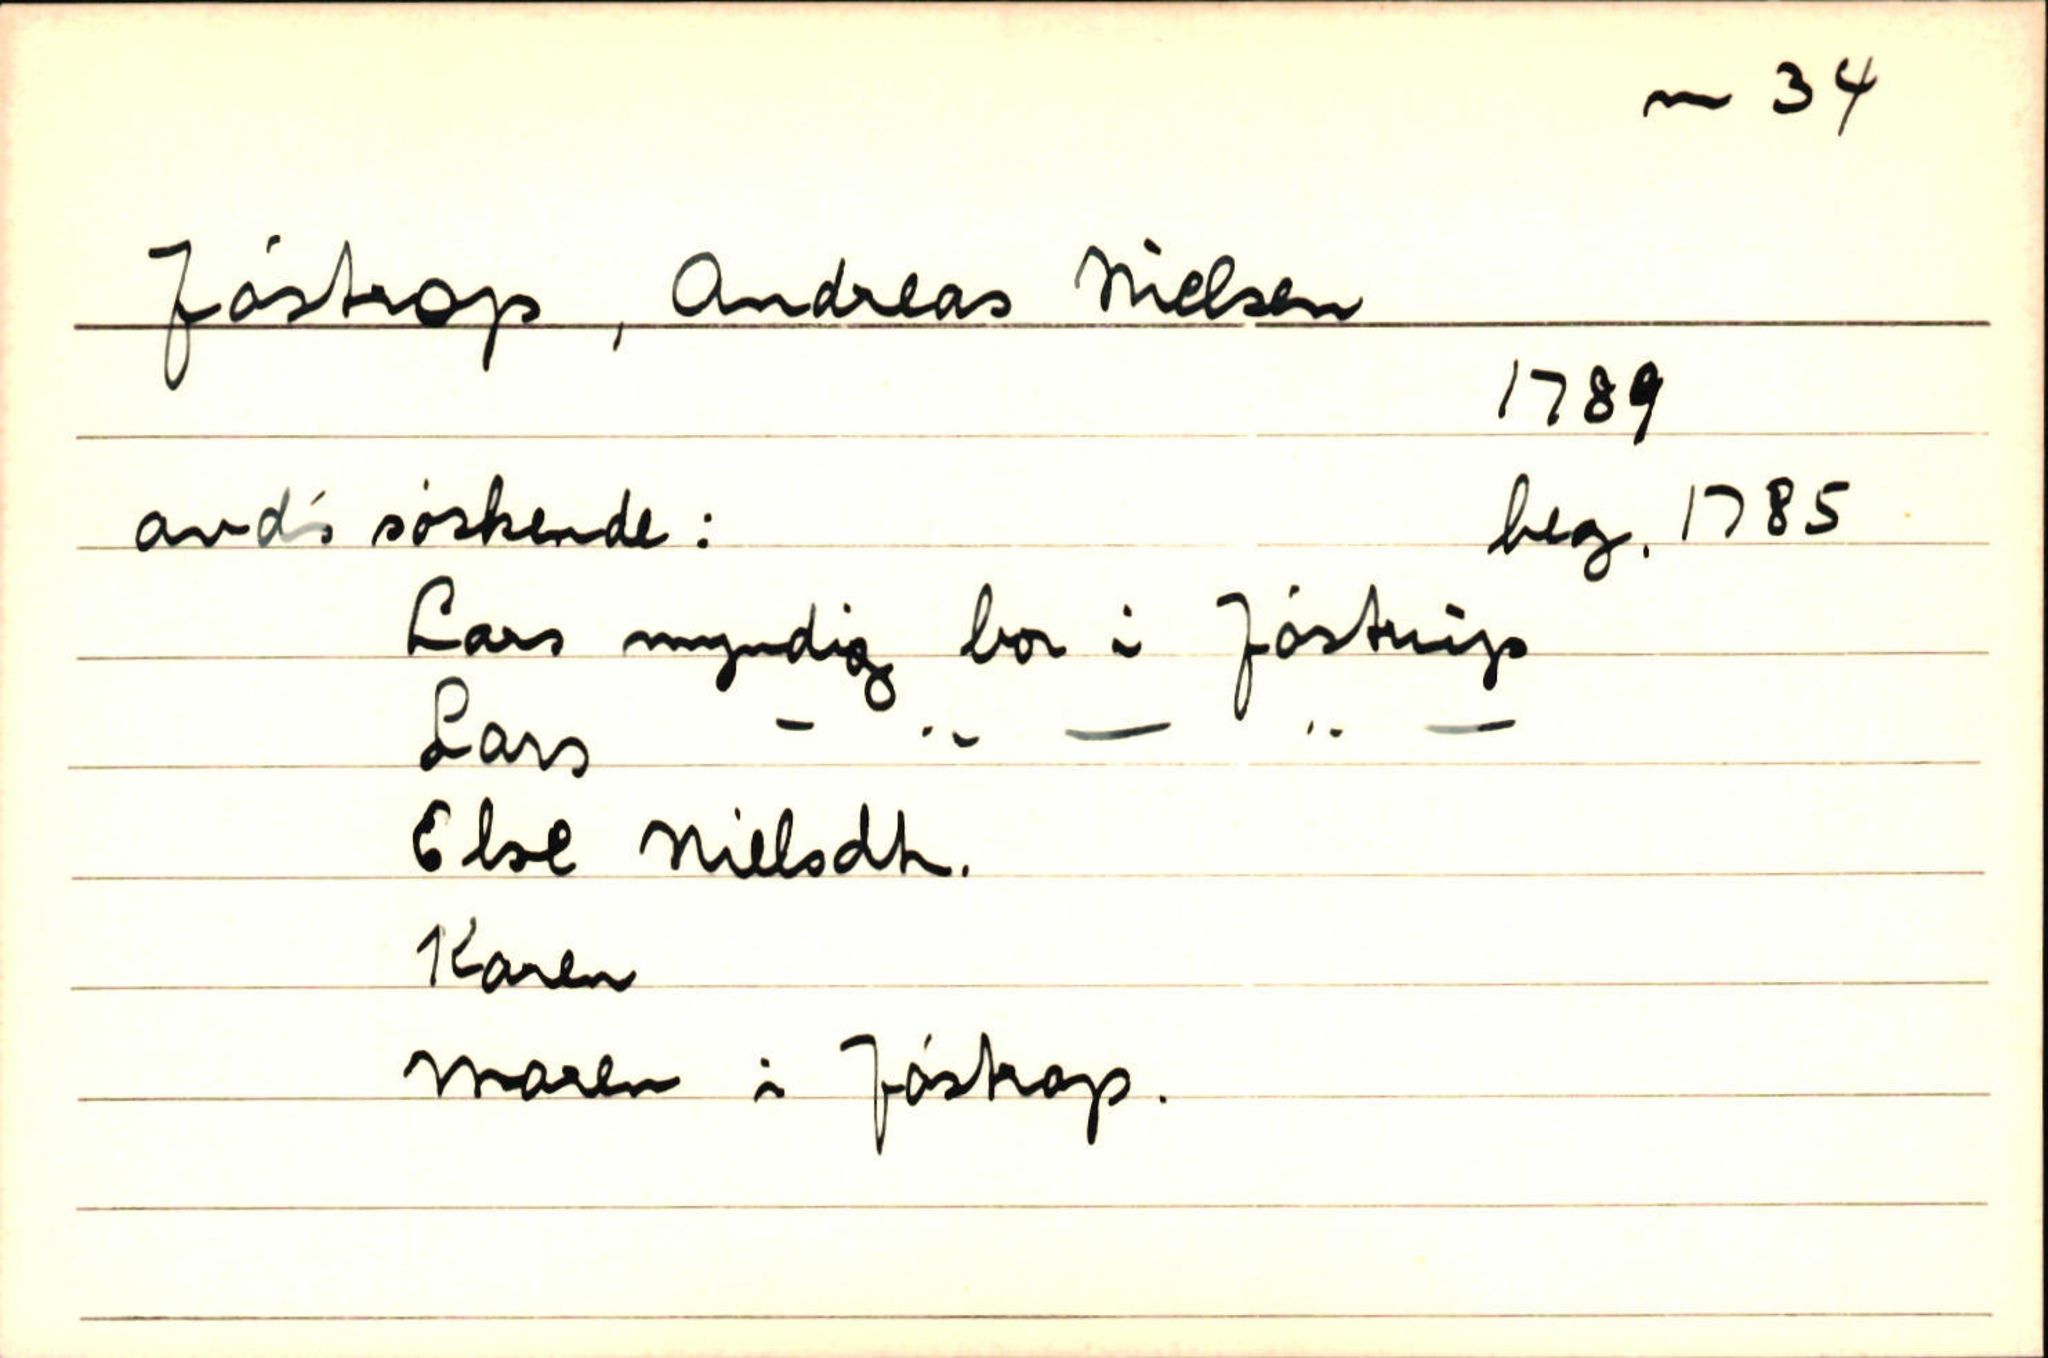 m 34
Jöstrop, Andreas Nielsen
1789
avd's söskende: beg. 1785
Lars myndig bor i Jöstrup
Lars - " — " —
Else Nielsdtr.
Karen
Maren i Jöstrop.